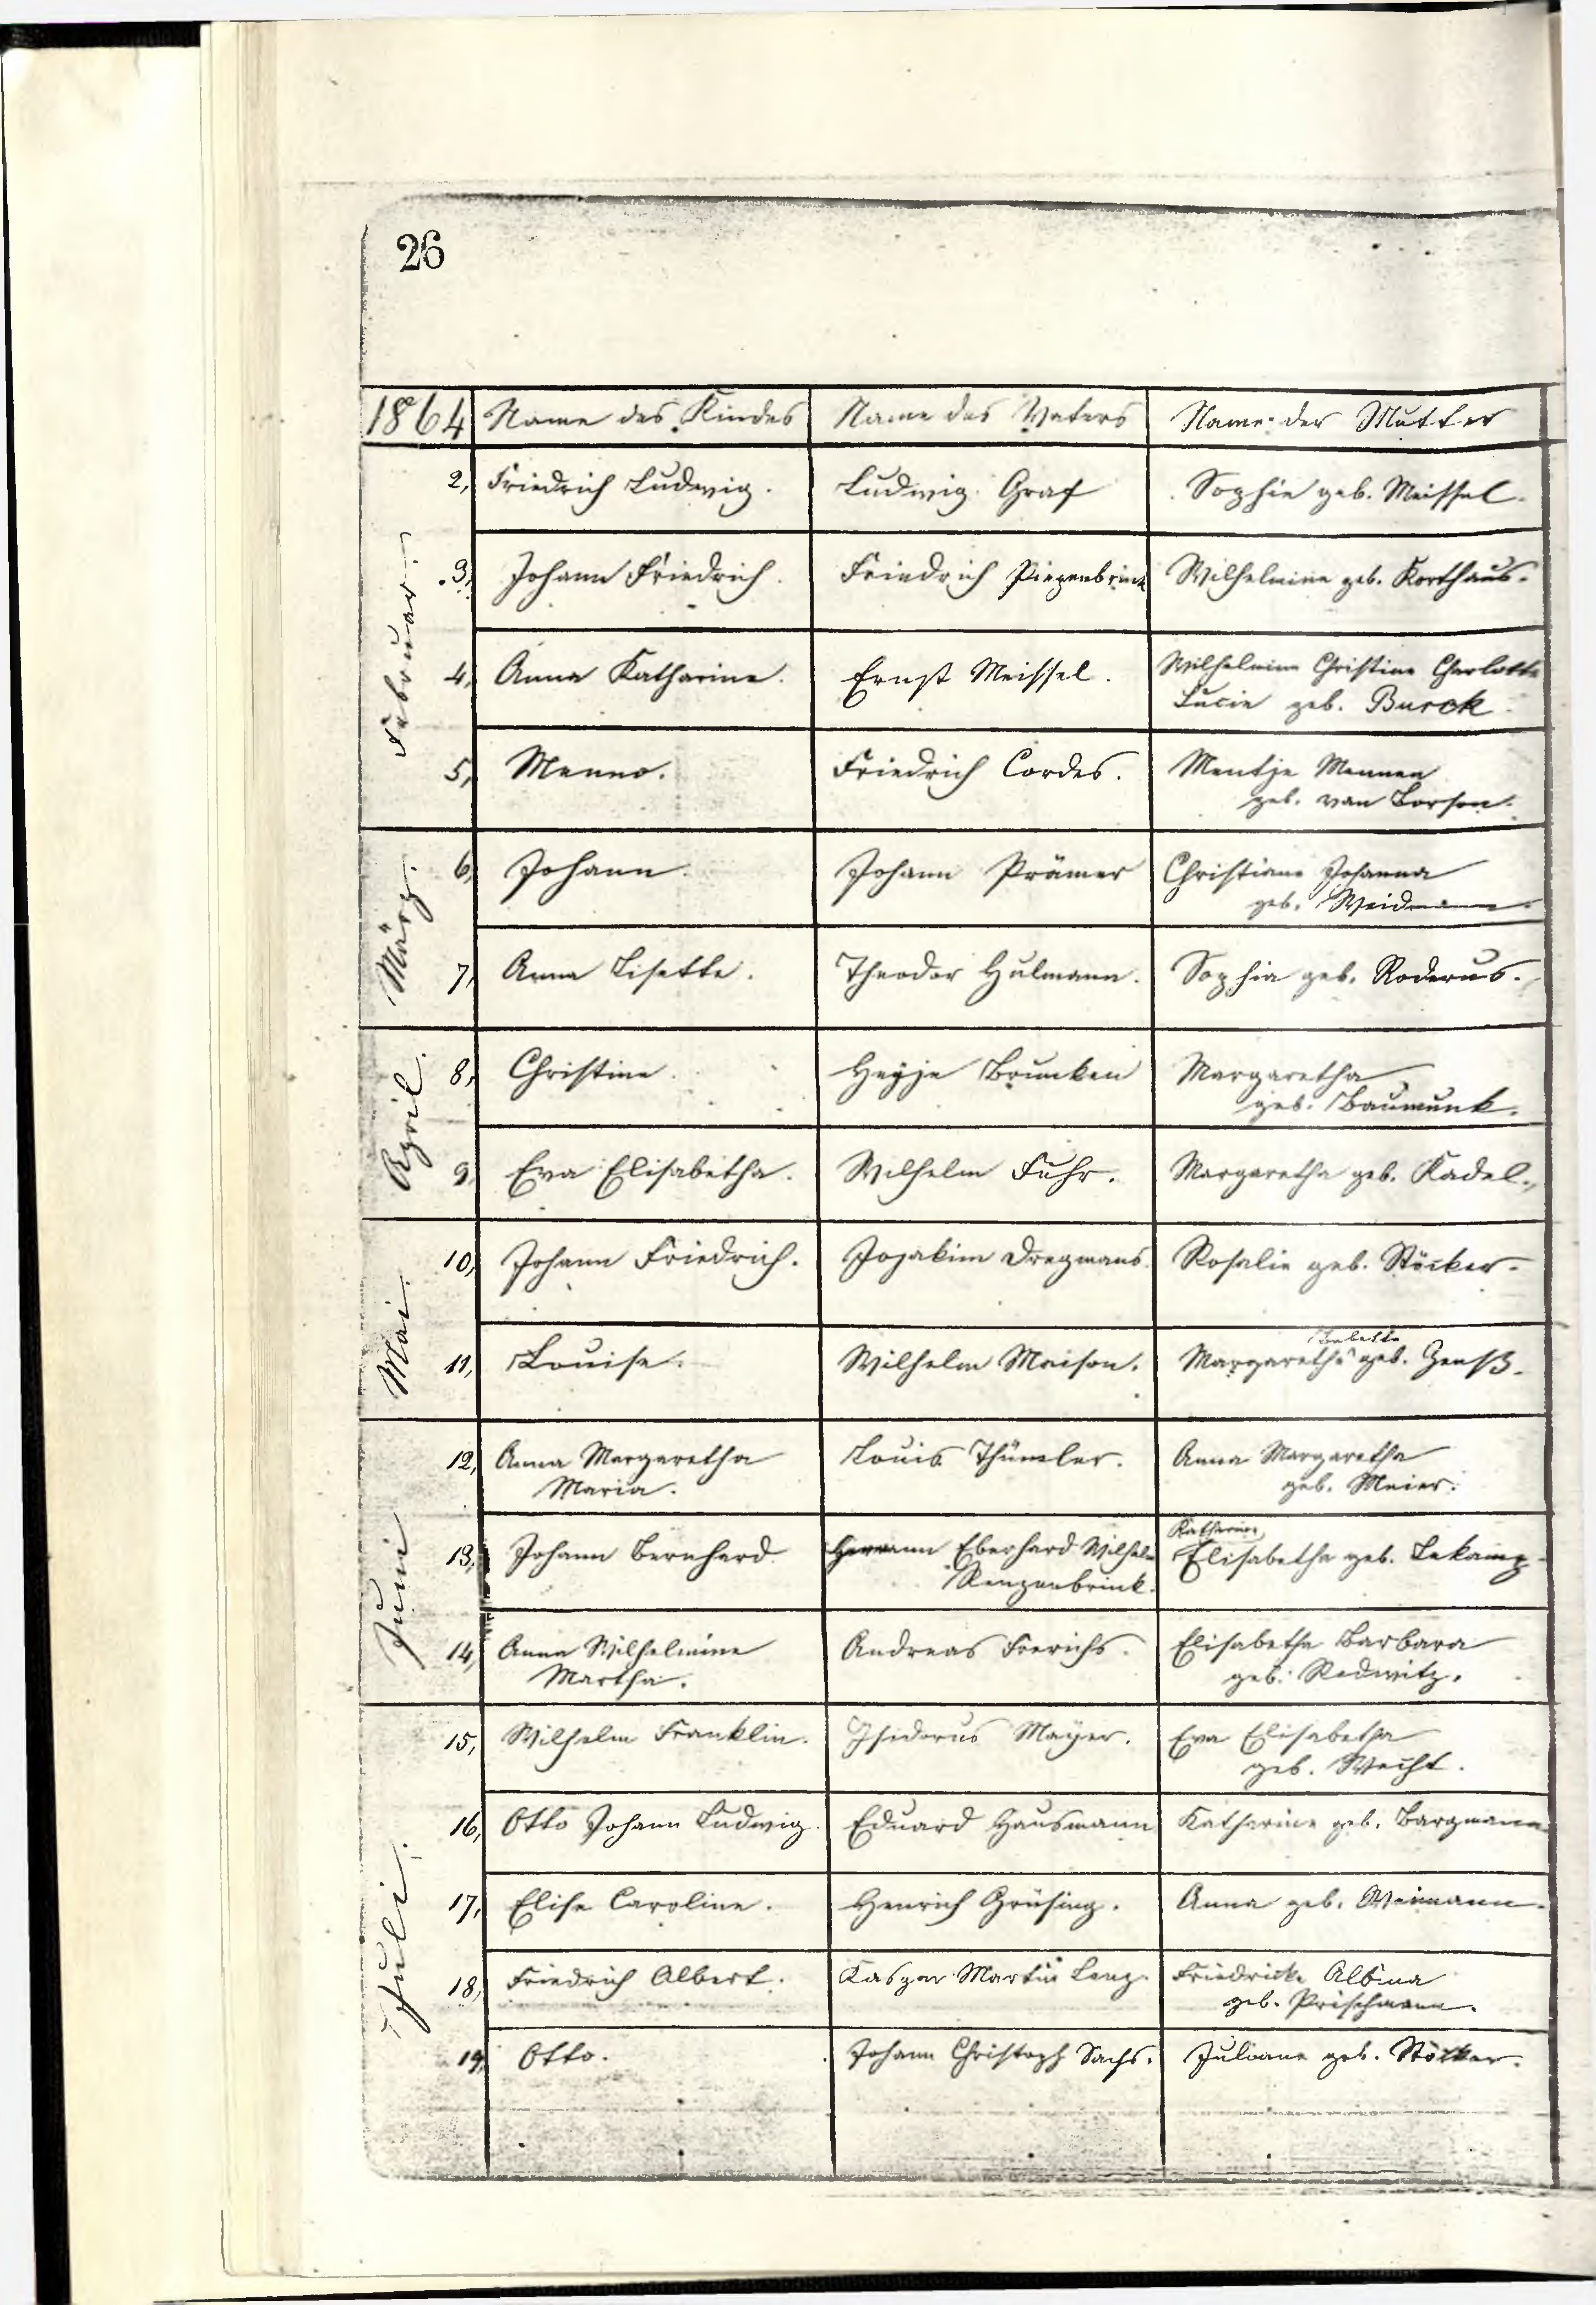 26
1864 Name des Kindes Name des Vaters Name der Mutter
Februar.
2, Friedrich Ludwig. Ludwig Graf Sophie geb. Meissel.
3, Johann Friedrich. Friedrich Piezenbrink Wilhelmine geb. Korthaus.
4, Anna Katharine. Ernst Meissel. Wilhelmine Christine Charlotte
Lucie geb. Burck
5, Menno. Friedrich Cordes. Mentje Mennen
geb. van Borsen.
März.
6, Johann. Johann Prämer Christiane Johanna
geb. Weidmann.
7, Anna Lisette. Theodor Hulmann. Sophia geb. Roderus.
April.
8, Christine. Heyje Brunken Margaretha
geb. Baumunk.
9, Eva Elisabetha. Wilhelm Fuhr. Margaretha geb. Kadel.
Mai.
10, Johann Friedrich. Jozakim Dregmans Rosalie geb. Stöcker.
11, Louise. Wilhelm Maison. Margaretha Babette geb. Zenß.
Juni
12, Anna Margaretha Louis Thümler. Anna Margaretha
Maria. geb. Meier.
13, Johann Bernhard. Hermann Eberhard Wilhelm Katharina
Renzenbrink. Elisabetha geb. Lekamp
14, Anna Wilhelmine Andreas Frerichs. Elisabetha Barbara
Martha. geb. Redwitz.
Juli.
15, Wilhelm Franklin. Isidorus Mayer. Eva Elisabetha
geb. Wecht.
16, Otto Johann Ludwig. Eduard Hausmann Katharine geb. Bargmann
17, Elise Caroline. Henrich Grüsing. Anna geb. Weimann.
18, Friedrich Albert. Kaspar Martin Lenz. Friedricke Albina
geb. Prischmann.
19, Otto. Johann Christoph Sachs. Juliane geb. Stöcker.